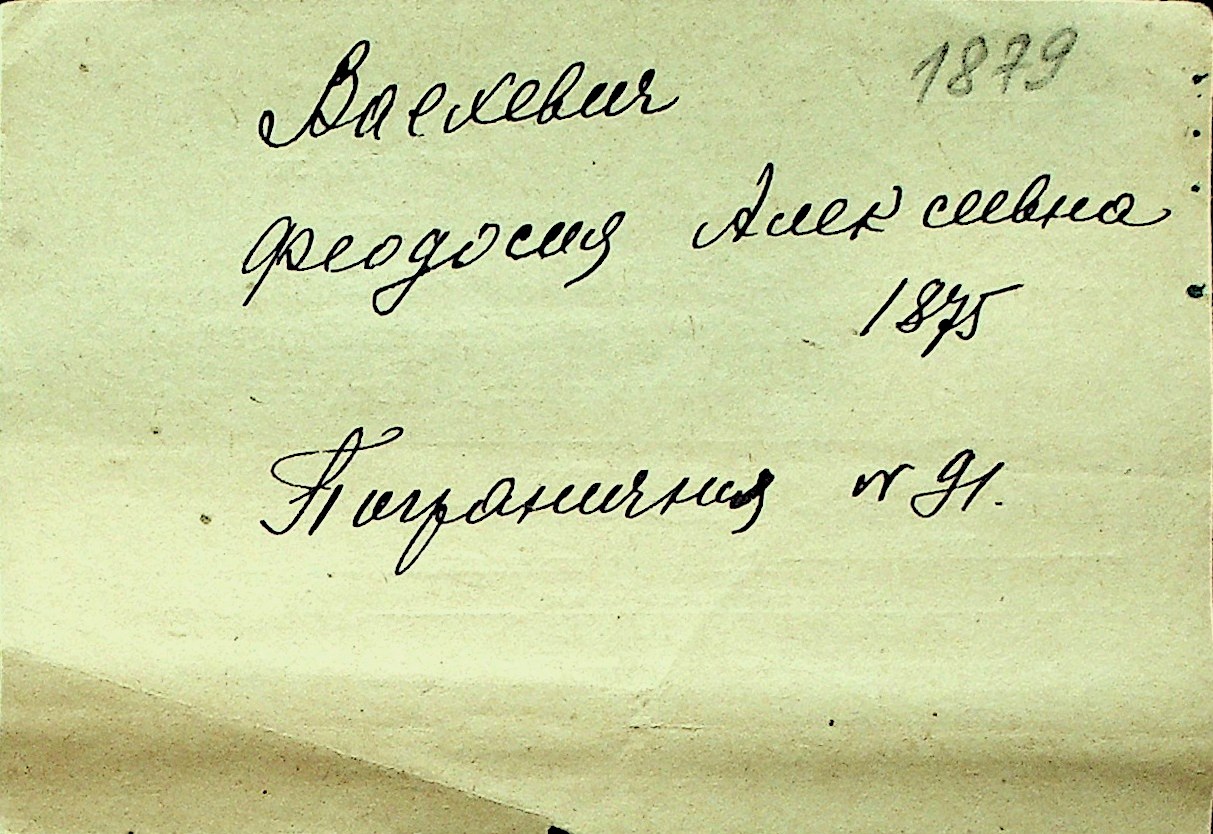 1879
Васкевич
Феодосия Алексеевна
1875
Пограничная № 91.